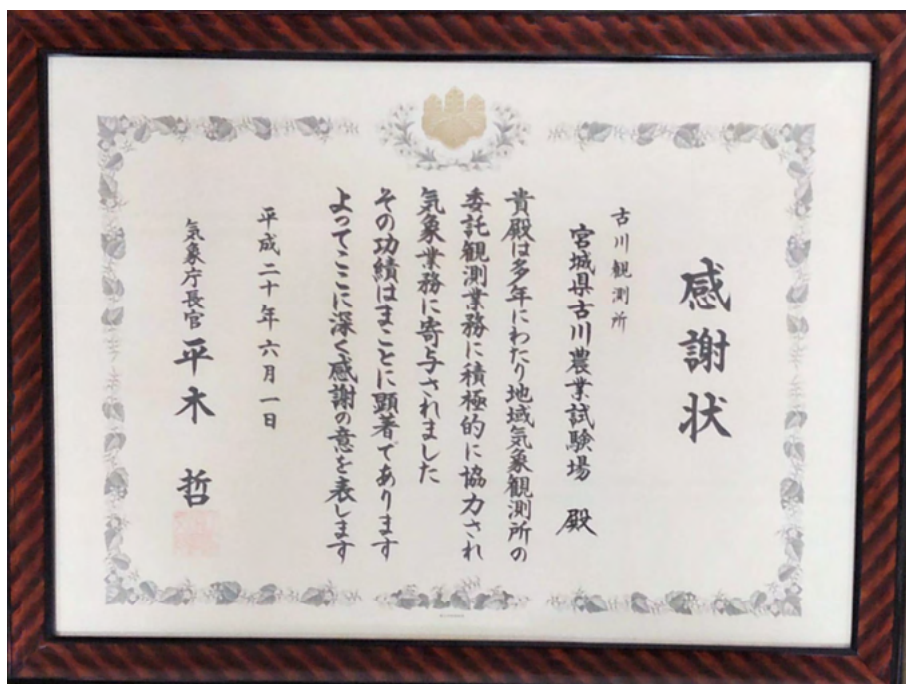 感謝状
古川観測所
宮城県古川農業試験場 殿
貴殿は多年にわたり地域気象観測所の
委託観測業務に積極的に協力され
気象業務に寄与されました
その功績はまことに顕著であります
よってここに深く感謝の意を表します
平成二十年六月一日
気象庁長官 平木 哲